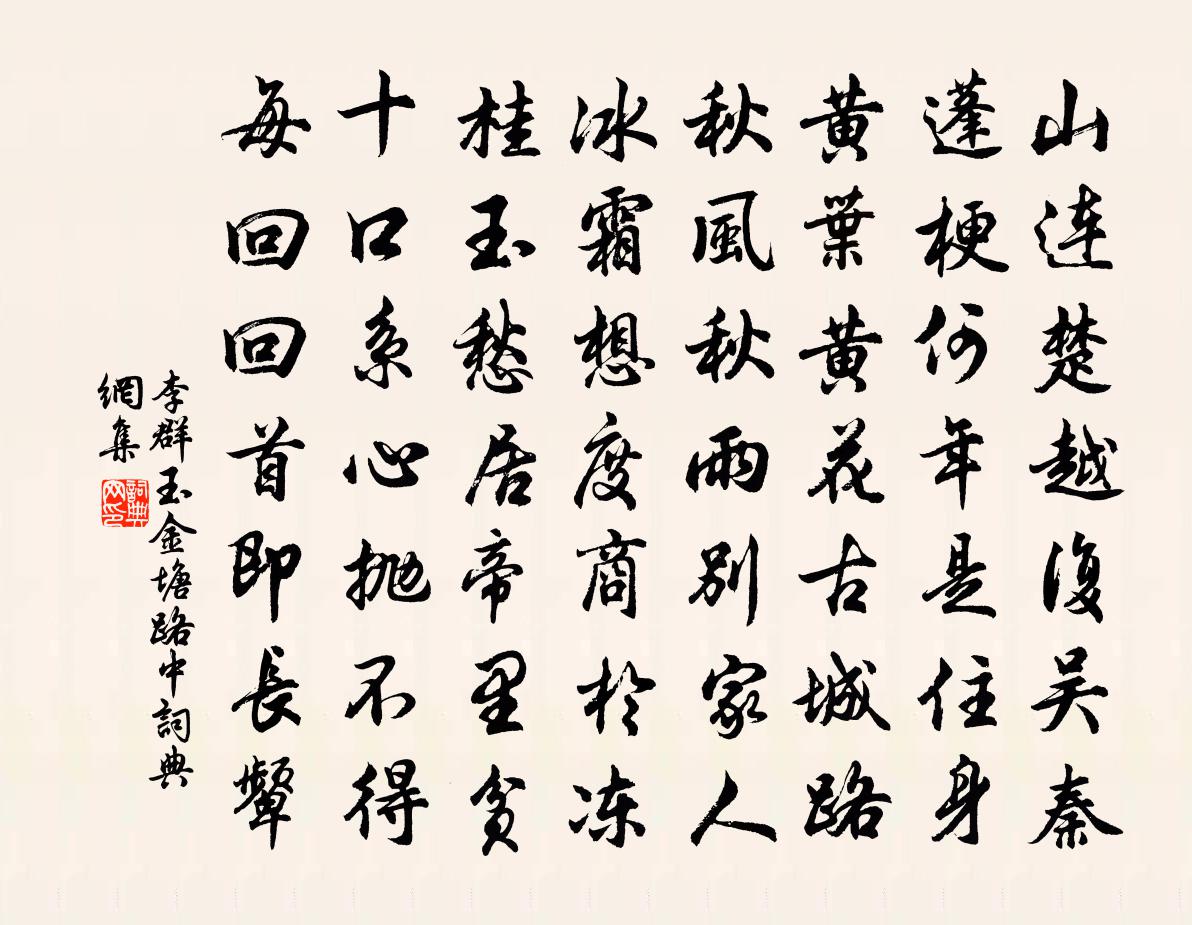 山連楚越復吴秦
蓬梗何年是住身
黄葉黄花古城路
秋風秋雨别家人
冰霜想度商於凍
桂玉愁居帝里貧
十口系心抛不得
每回回首即長顰
李群玉金塘路中詞典
網集
詞典
网印